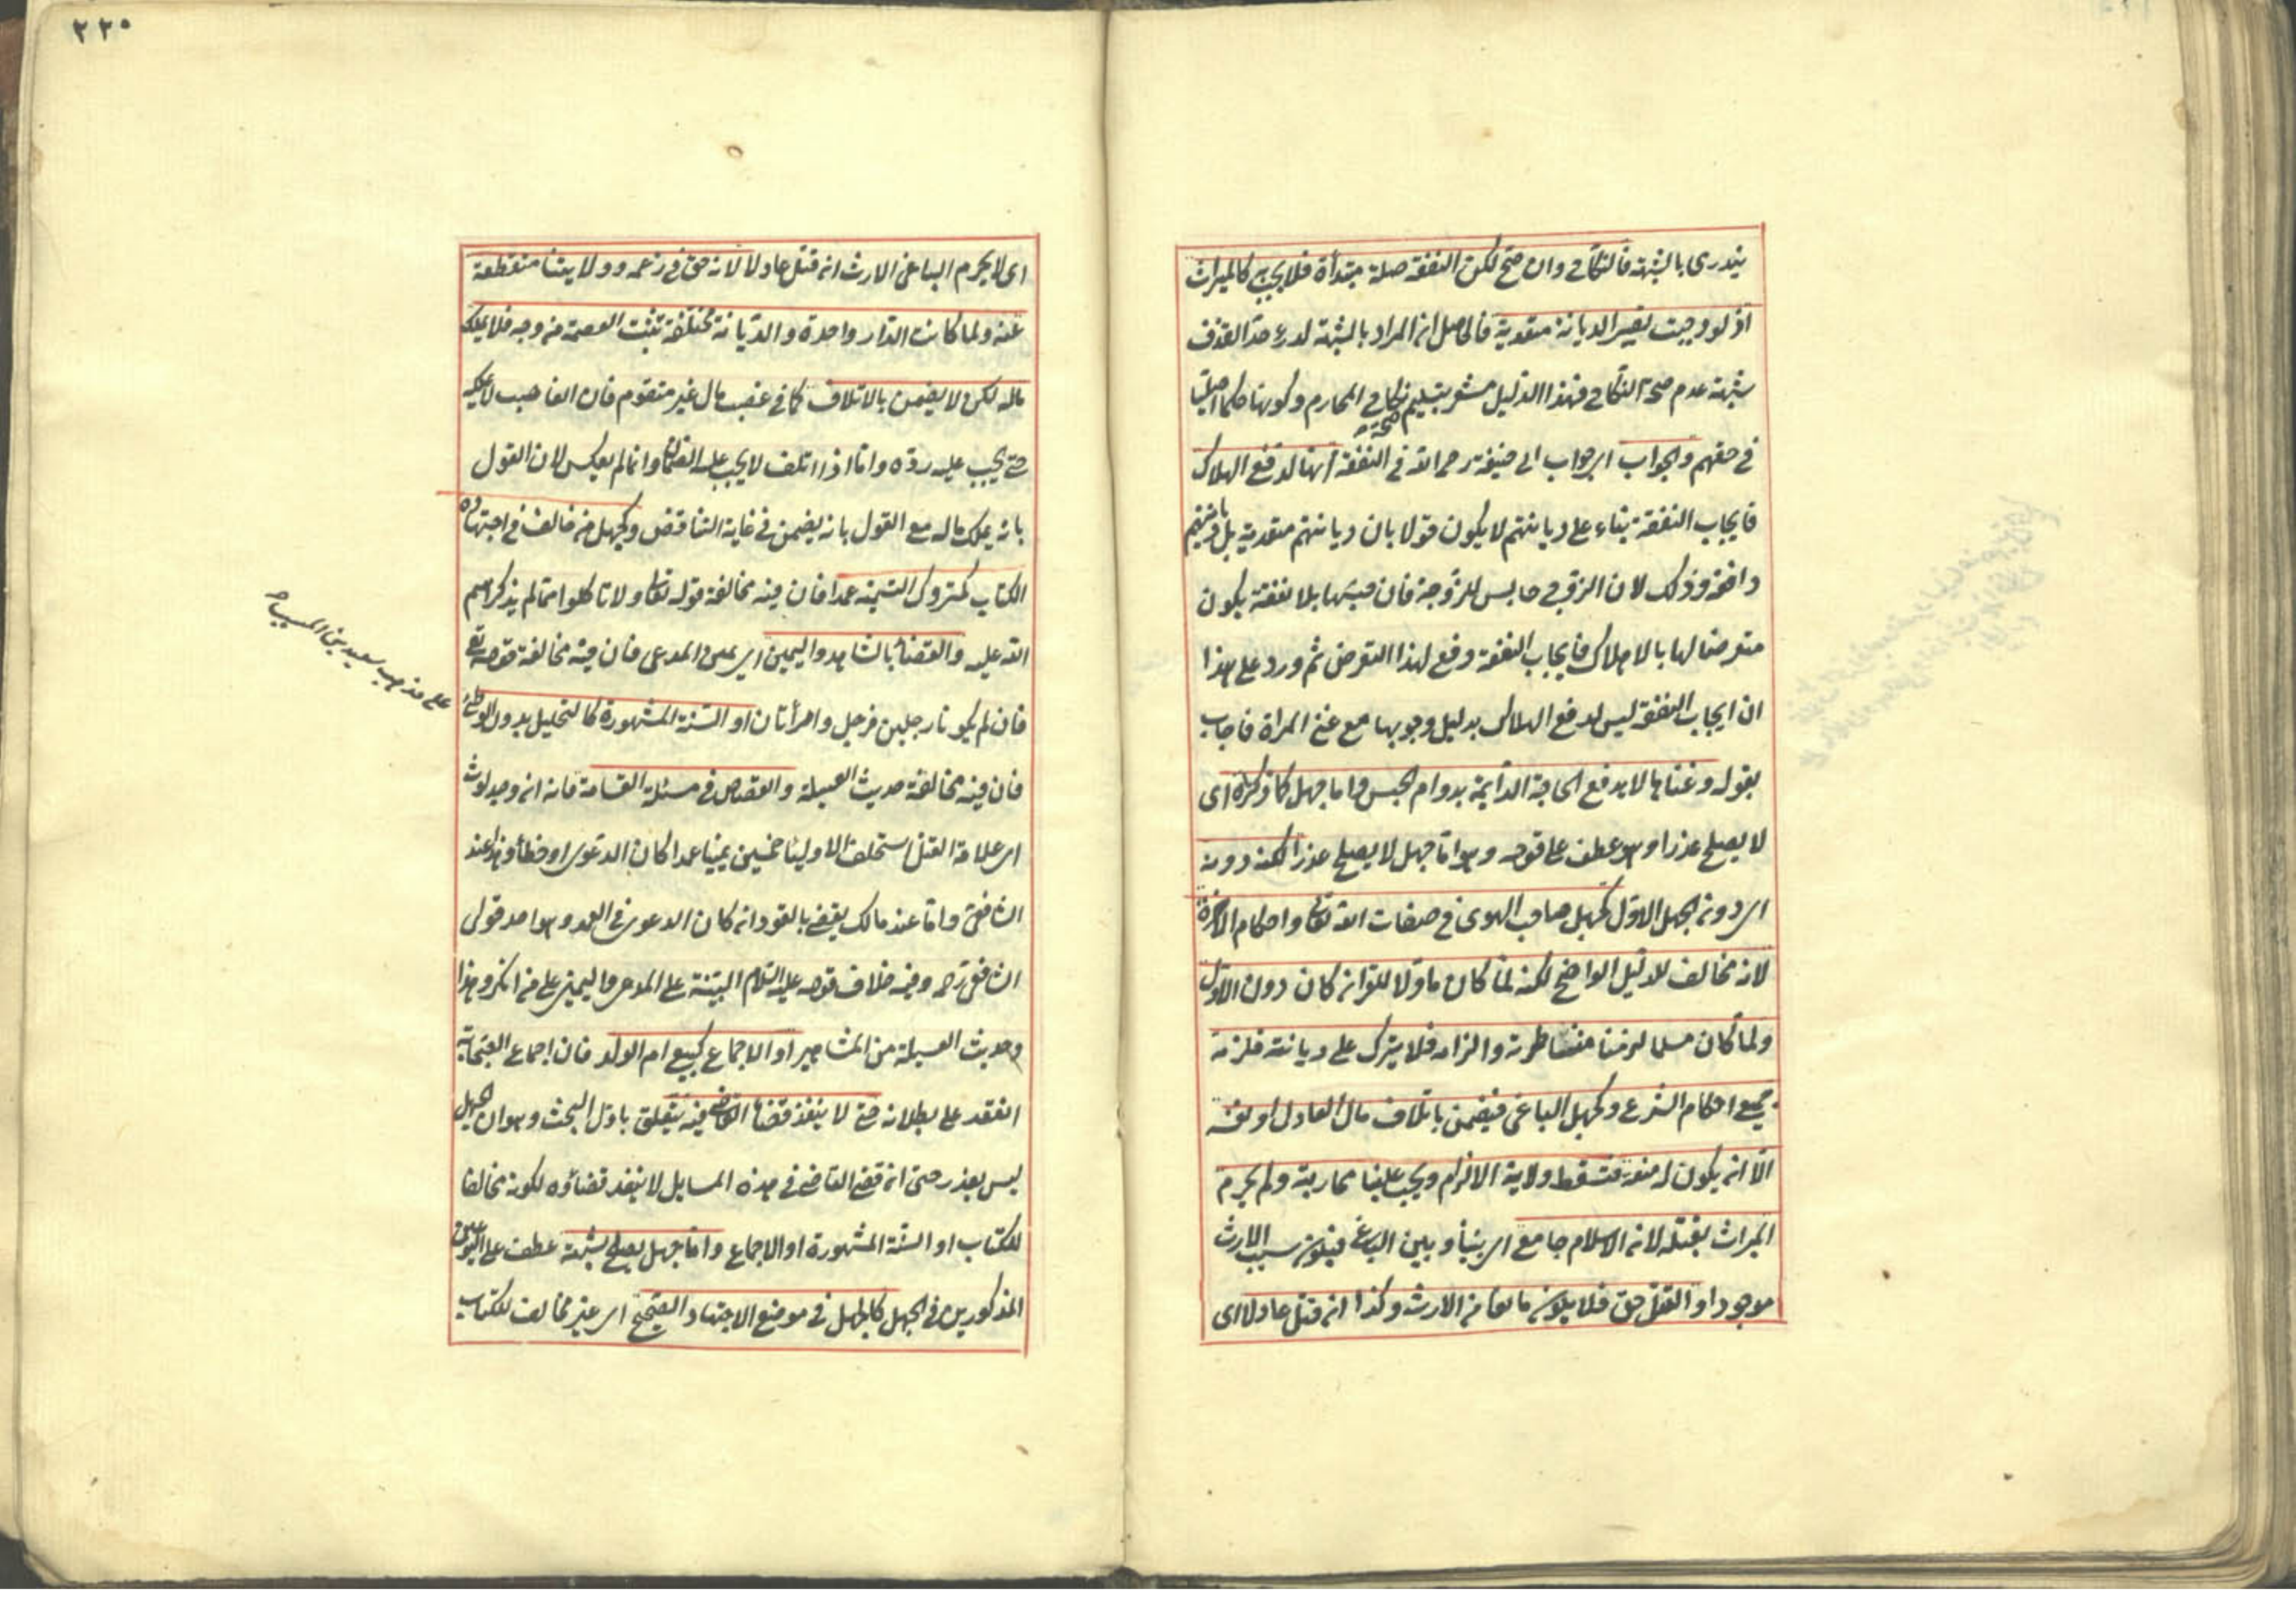 يندرى بالشبهة فالنكاح وان صح لكن النفقة صلة مبتدأة فلا يجب كالميراث
اذ لو وجبت تصير الديانة متعدية فالحاصل ان المراد بالشبهة لدرء حد القذف
شبهة عدم صحة النكاح فهذا الدليل مشعر بتسليم صحة نكاح المحارم وكونها حكما اصليا
في حقهم والجواب اى جواب ابى حنيفة رحمه الله فى النفقة انها لدفع الهلاك
فايجاب النفقة بناء على ديانتهم لا يكون قولا بان ديانتهم متعدية بل
دافعة وذلك لان الزوج حابس للزوجة فان حبسها بلا نفقة يكون
متعرضا لها بالاهلاك فايجاب النفقة دفع لهذا التعرض ثم ورد على هذا
ان ايجاب النفقة ليس لدفع الهلاك بدليل وجوبها مع غنى المراة فاجاب
بقوله وغناها لا يدفع الحاجة الدايمة بدوام الحبس واما جهل كما ذكرنا اى
لا يصلح عذرا وهو عطف على قوله وهو اما جهل لا يصلح عذرا لكنه دونه
اى دون الجهل الاول كجهل صاحب الهوى فى صفات الله تعالى واحكام الاخرة
لانه مخالف للدليل الواضح لكنه لما كان ماولا للقرآن كان دون الاول
ولما كان مسلما لزمنا مناظرته والزامه فلا يترك على ديانته فلزمه
جميع احكام الشرع وكجهل الباغى فيضمن باتلاف مال العادل او نفسه
الا ان يكون له منعة فتسقط ولاية الالزام ويجب علينا محاربته ولم يحرم
الميراث بقتله لان الاسلام جامع اى بيننا وبين الباغى فيكون سبب الارث
موجودا والقتل حق فلا يكون مانعا من الارث وكذا ان قتل عادلا اى
٢٢٥
اى لا يحرم الباغى الارث ان قتل عادلا لانه حق فى زعمه وولايتنا منقطعة
عنه ولما كانت الدار واحدة والديانة مختلفة تثبت العصمة من وجه فلا يملك
ماله لكن لا يضمن بالاتلاف كما فى غصب مال غير متقوم فان الغاصب لا يملكه
حتى يجب عليه رده واما اذا اتلف لا يجب عليه الضمان وانما لم يعكس لان القول
بانه يملك ماله مع القول بانه يضمن فى غاية التناقض وكجهل من خالف فى اجتهاده
الكتاب كمتروك التسمية عمدا فان فيه مخالفة قوله تعالى ولا تاكلوا مما لم يذكر اسم
الله عليه والقضاء بالشاهد واليمين اى يمين المدعى فان فيه مخالفة قوله تعالى
فان لم يكونا رجلين فرجل وامرأتان او السنة المشهورة كالتحليل بدون الوطئ
على مذهب سعيد بن المسيب
فان فيه مخالفة حديث العسيلة والقصاص فى مسئلة القسامة فانه ان وجد لوث
اى علامة القتل استحلف الاولياء خمسين يمينا عمدا كان الدعوى او خطأ وهذا عند
الشافعى واما عند مالك يقضى بالقود ان كان الدعوى فى العمد وهو احد قولى
الشافعى رحمه وفيه خلاف قوله عليه السلام البينة على المدعى واليمين على من انكر وهذا
وحديث العسيلة من المشاهير او الاجماع كبيع ام الولد فان اجماع الصحابة
انعقد على بطلانه حتى لا ينفذ قضاء القاضى فيه يتعلق باول البحث وهو ان الجهل
ليس بعذر حتى ان قضى القاضى فى هذه المسايل لا ينفذ قضاؤه لكونه مخالفا
للكتاب او السنة المشهورة او الاجماع واما جهل يصلح شبهة عطف على النوعين
المذكورين فى الجهل كالجهل فى موضع الاجتهاد الصحيح اى غير مخالف للكتاب